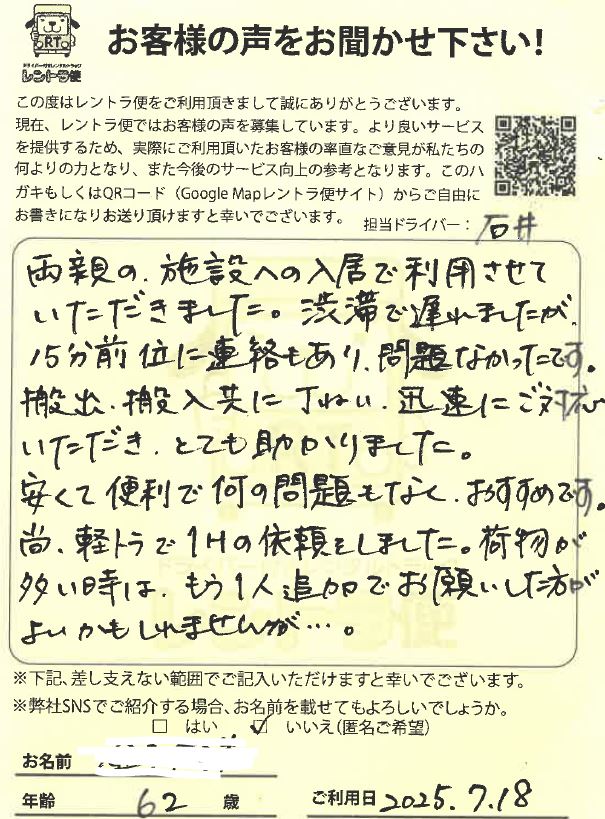 RT
ドライバー付きレンタルトラック
レントラ便
お客様の声をお聞かせ下さい！
この度はレントラ便をご利用頂きまして誠にありがとうございます。
現在、レントラ便ではお客様の声を募集しています。より良いサービス
を提供するため、実際にご利用頂いたお客様の率直なご意見が私たちの
何よりの力となり、また今後のサービス向上の参考となります。このハ
ガキもしくはQRコード（Google Mapレントラ便サイト）からご自由に
お書きになりお送り頂けますと幸いでございます。
担当ドライバー：石井
両親の、施設への入居で利用させて
いただきました。渋滞で遅れましたが、
15分前位に連絡もあり、問題なかったです。
搬出、搬入共に丁ねい、迅速にご対応
いただき、とても助かりました。
安くて便利で何の問題もなく、おすすめです。
尚、軽トラで1Hの依頼をしました。荷物が
多い時は、もう1人追加でお願いした方が
よいかもしれませんが…。
※下記、差し支えない範囲でご記入いただけますと幸いでございます。
※弊社SNSでご紹介する場合、お名前を載せてもよろしいでしょうか。
□ はい ☑ いいえ（匿名ご希望）
お名前
年齢 62 歳 ご利用日 2025.7.18